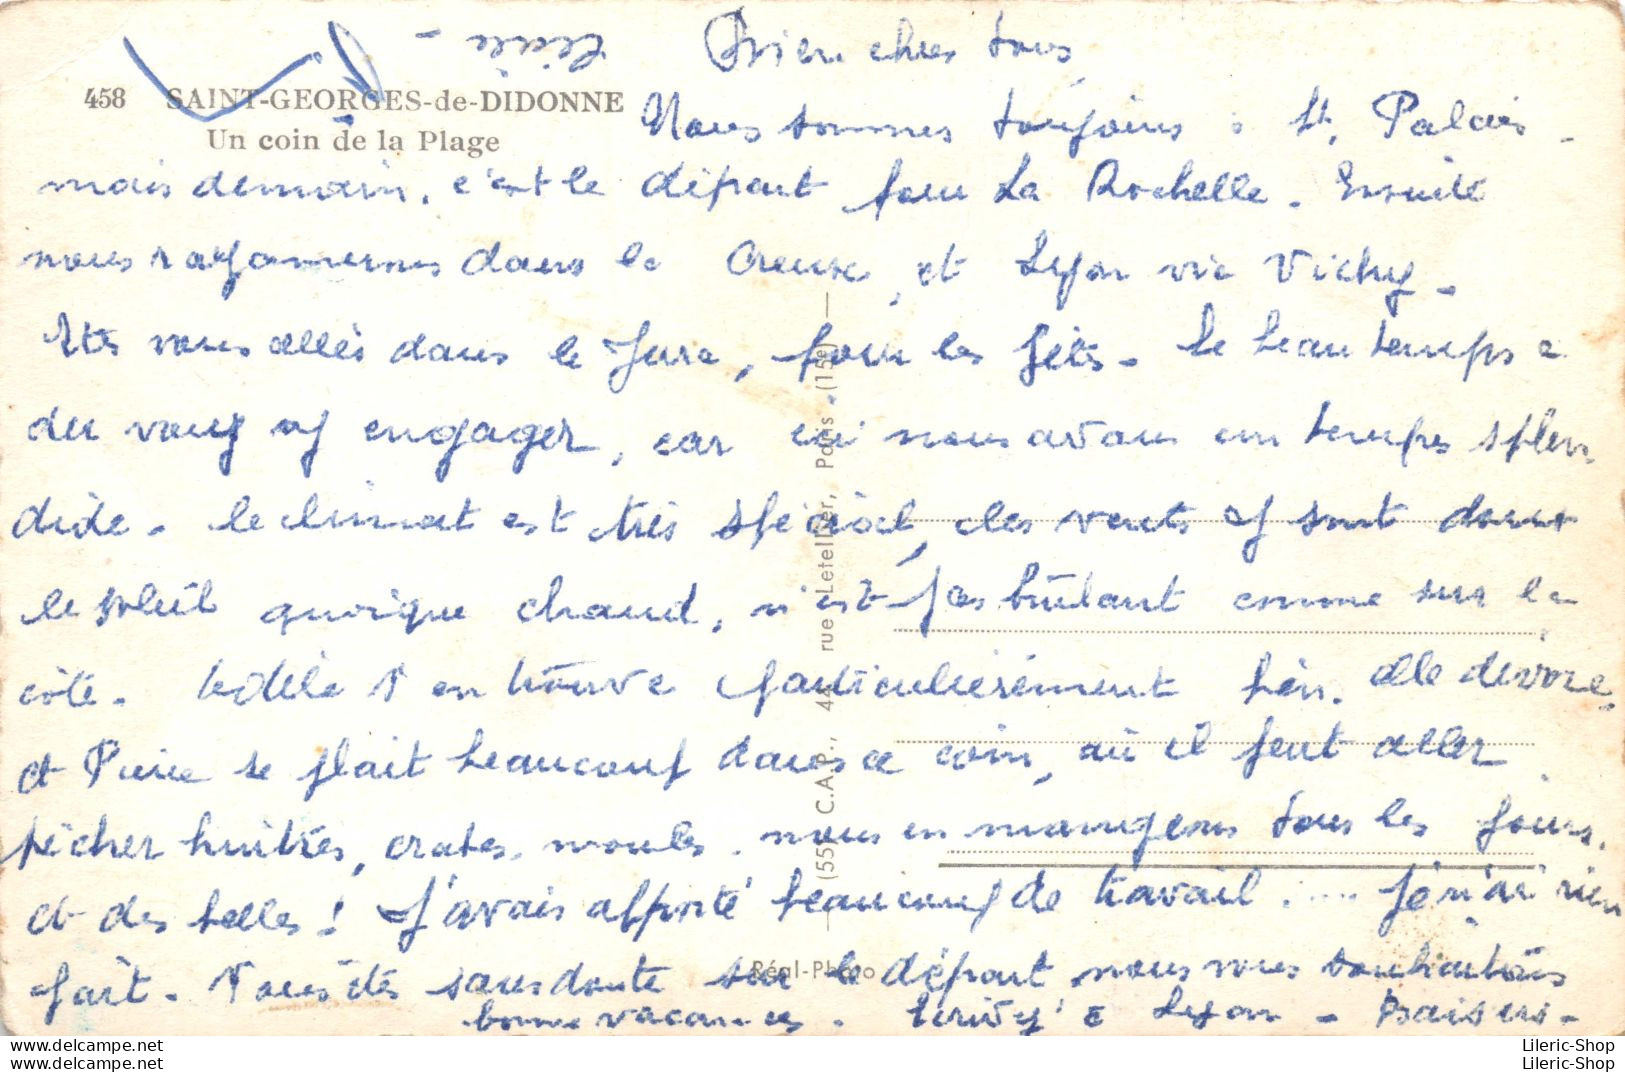 Bien chers tous
458 SAINT-GEORGES-de-DIDONNE
Un coin de la Plage
Nous sommes toujours à St. Palais -
mais demain, c'est le départ pour La Rochelle. Ensuite
nous rayonnerons dans la Creuse, et Lyon via Vichy -
Etes vous allés dans le Jura, pour les fêtes - Le beau temps a
du vous y engager, car ici nous avons un temps splen
dide - le climat est très spécial, les vents y sont doux
le soleil quoique chaud, n'est pas brûlant comme sur la
côte - s'en trouve particulièrement bien. elle dévore,
et Pierre se plait beaucoup dans ce coin, où il peut aller
pêcher huitres, crabes, moules. nous en mangeons tous les jours,
et des belles ! J'avais apporté beaucoup de travail ..... Je n'ai rien
fait - Vous êtes sans doute sur le départ, nous vous souhaitons
bonne vacances. Ecrivez à Lyon - Baisers -
Cécile -
(55) C.A.P., 44, rue Letellier, Paris (15e)
Réal-Photo
Lileric-Shop
Lileric-Shop
www.delcampe.net
www.delcampe.net